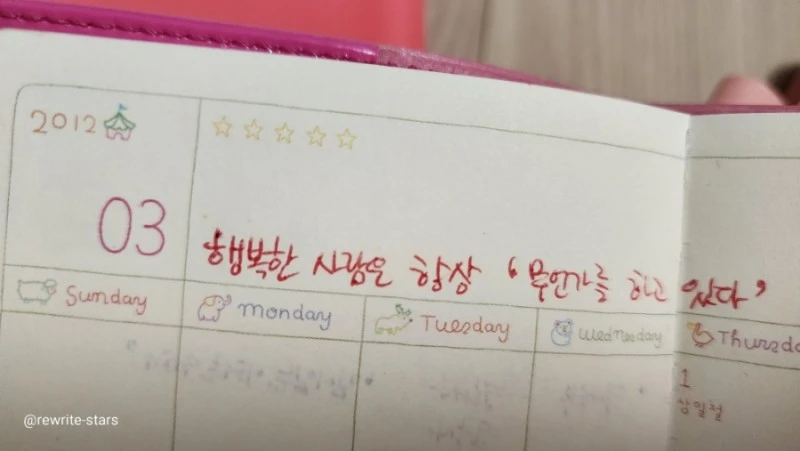 2012
03
행복한 사람은 항상 ‘무언가를 하고 있다’
Sunday
monday
Tuesday
wednesday
Thursda
1
삼일절
@rewrite-stars